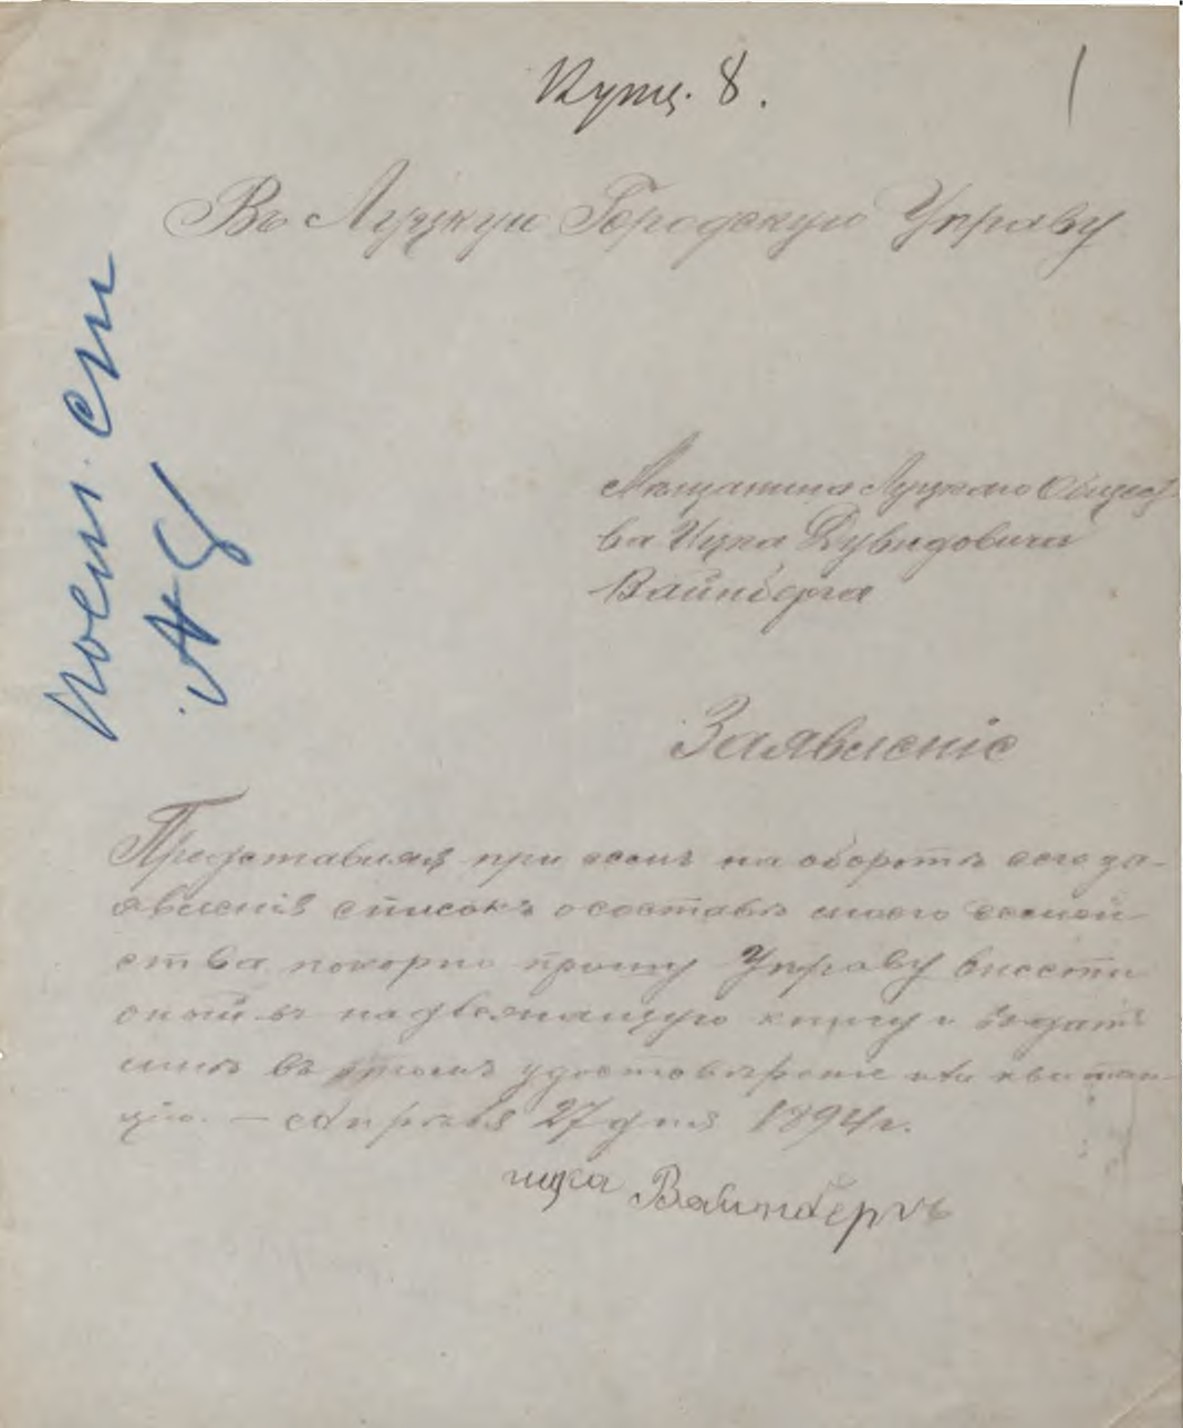 Купц. 8.
Въ Луцкую Городскую Управу
Мѣщанина Луцкаго Общест
ва Ицка Дувидовича
Вайнберга
Заявленіе
Представляя при семъ на оборотѣ сего за-
явленія списокъ о составѣ моего семей
ства покорно прошу Управу внести
оный въ надлежащую книгу и выдать
мнѣ въ томъ удостовѣреніе или квитан-
цію. — Апрѣля 27 дня 1894 г.
ицка Вайнбергъ